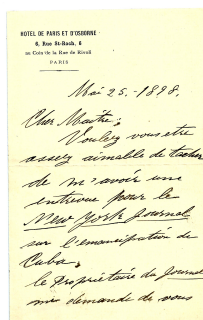 HOTEL DE PARIS ET D'OSBORNE
6, Rue St-Roch, 6
au Coin de la Rue de Rivoli
PARIS
Mai 25 - 1898.
Cher Maître;
Voulez vous être
assez aimable de tacher
de m'avoir une
entrevue pour le
New York Journal
sur l'émancipation de
Cuba.
le Propriétaire du Journal
me demande de vous